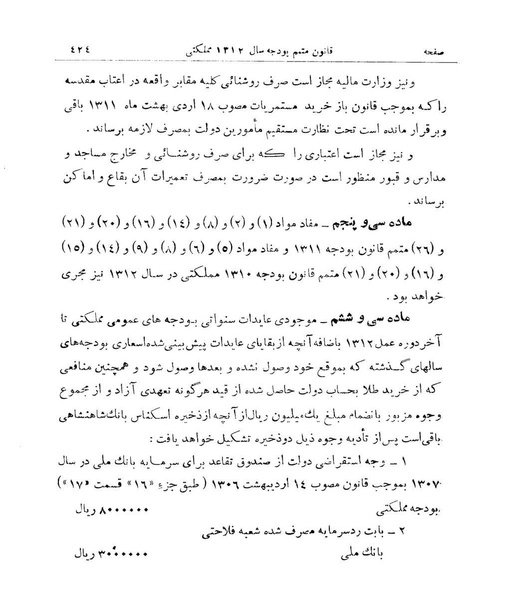 صفحه قانون متمم بودجه سال ۱۳۱۲ مملکتی ۴۲۴
و نیز وزارت مالیه مجاز است صرف روشنائی کلیه مقابر واقعه در اعتاب مقدسه
را که بموجب قانون باز خرید مستمریات مصوب ۱۸ اردی بهشت ماه ۱۳۱۱ باقی
و برقرار مانده است تحت نظارت مستقیم مأمورین دولت بمصرف لازمه برساند.
و نیز مجاز است اعتباری را که برای صرف روشنائی و مخارج مساجد و
مدارس و قبور منظور است در صورت ضرورت بمصرف تعمیرات آن بقاع و اماکن
برساند.
ماده سی و پنجم ـ مفاد مواد (۱) و (۲) و (۸) و (۱۴) و (۱۶) و (۲۰) و (۲۱)
و (۲۶) متمم قانون بودجه ۱۳۱۱ و مفاد مواد (۵) و (۶) و (۸) و (۹) و (۱۴) و (۱۵)
و (۱۶) و (۲۰) و (۲۱) متمم قانون بودجه ۱۳۱۰ مملکتی در سال ۱۳۱۲ نیز مجری
خواهد بود.
ماده سی و ششم ـ موجودی عایدات سنواتی بودجه های عمومی مملکتی تا
آخر دوره عمل ۱۳۱۲ باضافه آنچه از بقایای عایدات پیش بینی شده اسعاری بودجه‌های
سالهای گذشته که بموقع خود وصول نشده و بعدها وصول شود و همچنین منافعی
که از خرید طلا بحساب دولت حاصل شده از قید هرگونه تعهدی آزاد و از مجموع
وجوه مزبور بانضمام مبلغ یك میلیون ریال از آنچه از ذخیره اسکناس بانك شاهنشاهی
باقی است پس از تأدیه وجوه ذیل دو ذخیره تشکیل خواهد یافت :
۱ ـ وجه استقراضی دولت از صندوق تقاعد برای سرمایه بانك ملی در سال
۱۳۰۷ بموجب قانون مصوب ۱۴ اردیبهشت ۱۳۰۶ ( طبق جزء «۱۶» قسمت «۱۷»)
بودجه مملکتی ۸۰۰۰۰۰۰ ریال
۲ ـ بابت رد سرمایه مصرف شده شعبه فلاحتی
بانك ملی ۳۰۰۰۰۰۰ ریال